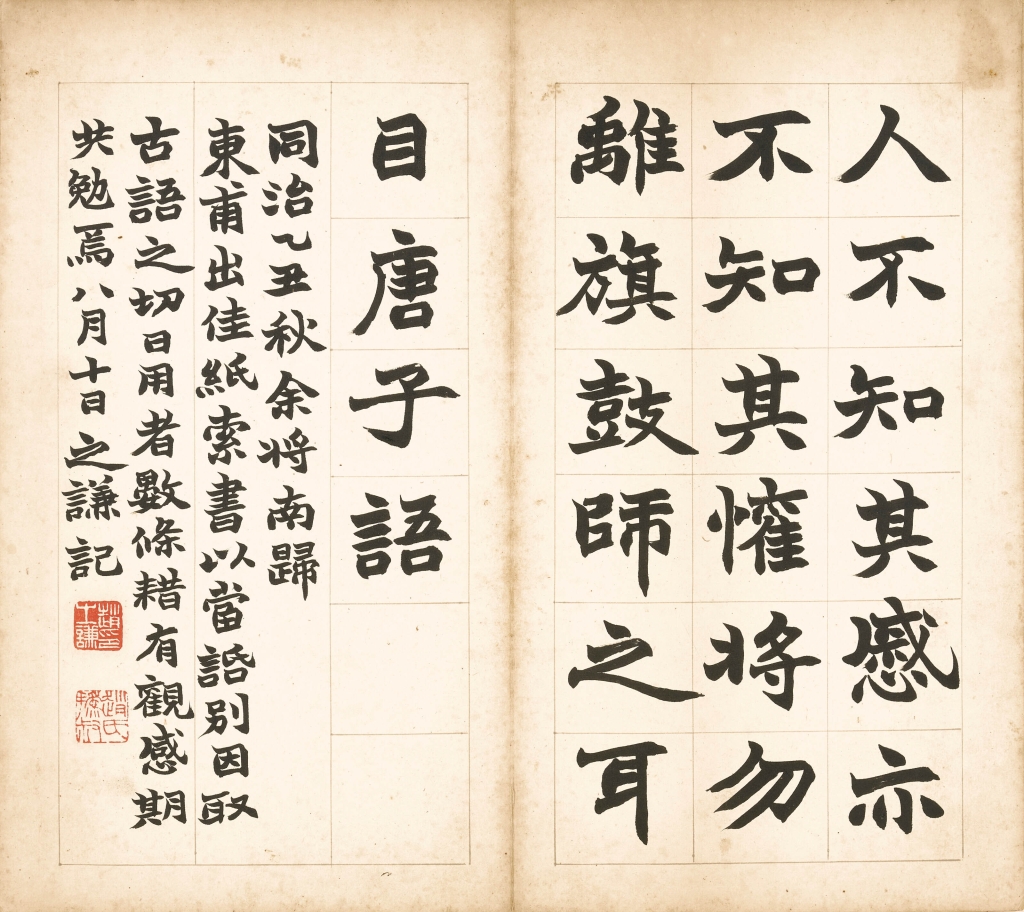 人不知其慼亦
不知其懽將勿
離旗鼓師之耳
目唐子語
同治乙丑秋余將南歸
東甫出佳紙索書以當話別因取
古語之切日用者數條耤有觀感期
共勉焉八月十日之謙記
趙印之謙
趙氏撝叔